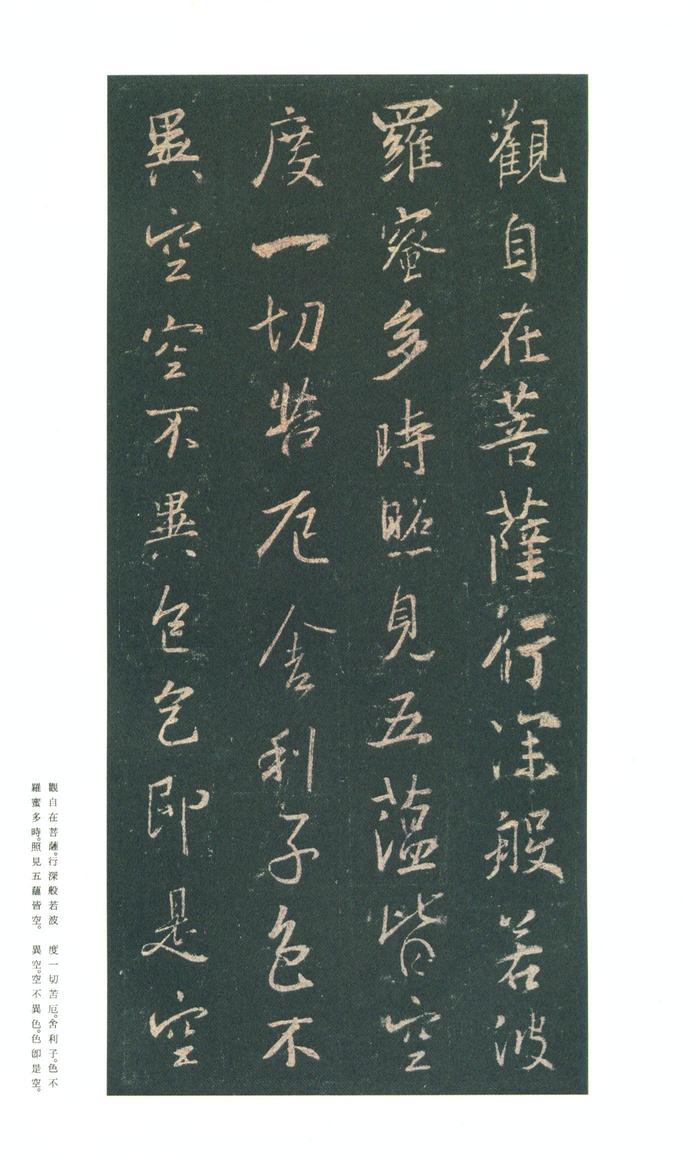 觀自在菩薩行深般若波
羅蜜多時照見五蘊皆空
度一切苦厄舍利子色不
異空空不異色色即是空
觀自在菩薩。行深般若波
羅蜜多時。照見五蘊皆空。
度一切苦厄。舍利子。色不
異空。空不異色。色卽是空。